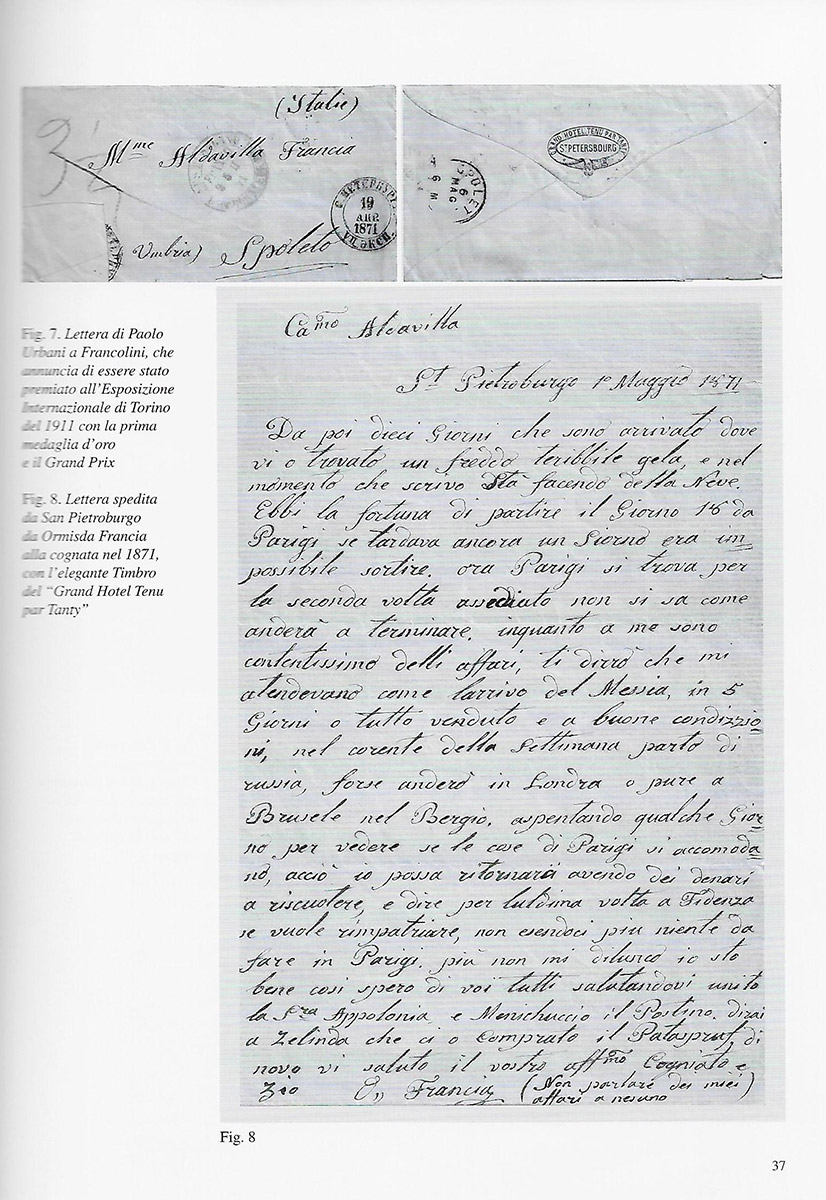 (Italie)
Mme Aldavilla Francia
Umbria) Spoleto
С. ПЕТЕРБУРГ
19
АПР.
1871
GRAND HOTEL TENU PAR TANTY
ST PETERSBOURG
SPOLETO
6
MAG
6 M
Fig. 7. Lettera di Paolo
Urbani a Francolini, che
annuncia di essere stato
premiato all'Esposizione
Internazionale di Torino
del 1911 con la prima
medaglia d'oro
e il Grand Prix
Fig. 8. Lettera spedita
da San Pietroburgo
da Ormisda Francia
alla cognata nel 1871,
con l'elegante Timbro
del "Grand Hotel Tenu
par Tanty"
Camo Aldavilla
St Pietroburgo 1º Maggio 1871
Da poi dieci Giorni che sono arrivato dove
vi o trovato un freddo teribbile gela, e nel
momento che scrivo Sta facendo della Neve.
Ebbi la fortuna di partire il Giorno 18 da
Parigi se tardava ancora un Giorno era im=
possibile sortire. ora Parigi si trova per
la seconda volta assediato non si sa come
anderà a terminare. inquanto a me sono
contentissimo delli affari, ti dirrò che mi
atendevano come larrivo del Messia, in 5
Giorni o tutto venduto e a buone condizzio=
ni, nel corente della Settimana parto di
russia, forse anderò in Londra o pure a
Brusele nel Bergio, aspentando qualche Gior=
no per vedere se le cose di Parigi si accomoda=
no, acciò io possa ritornarà avendo dei denari
a riscuotere, e dire per luldima volta a Fidenza
se vuole rimpatriare, non esendoci piu niente da
fare in Parigi. più non mi dilunco io sto
bene cosi spero di voi tutti salutandovi unito
la Sra Appolonia e Menichuccio il Postino. dirai
a Zelinda che ci o Comprato il di
novo vi saluto il vostro affmo Cogniato e
Zio E,, Francia (Non parlare dei miei
affari a nesuno)
Fig. 8
37